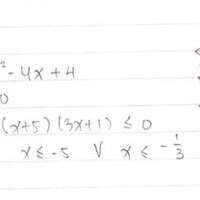 ² - 4x + 4
0
(x+5) (3x+1) ≤ 0
x ≤ -5 V x ≤ - 1/3